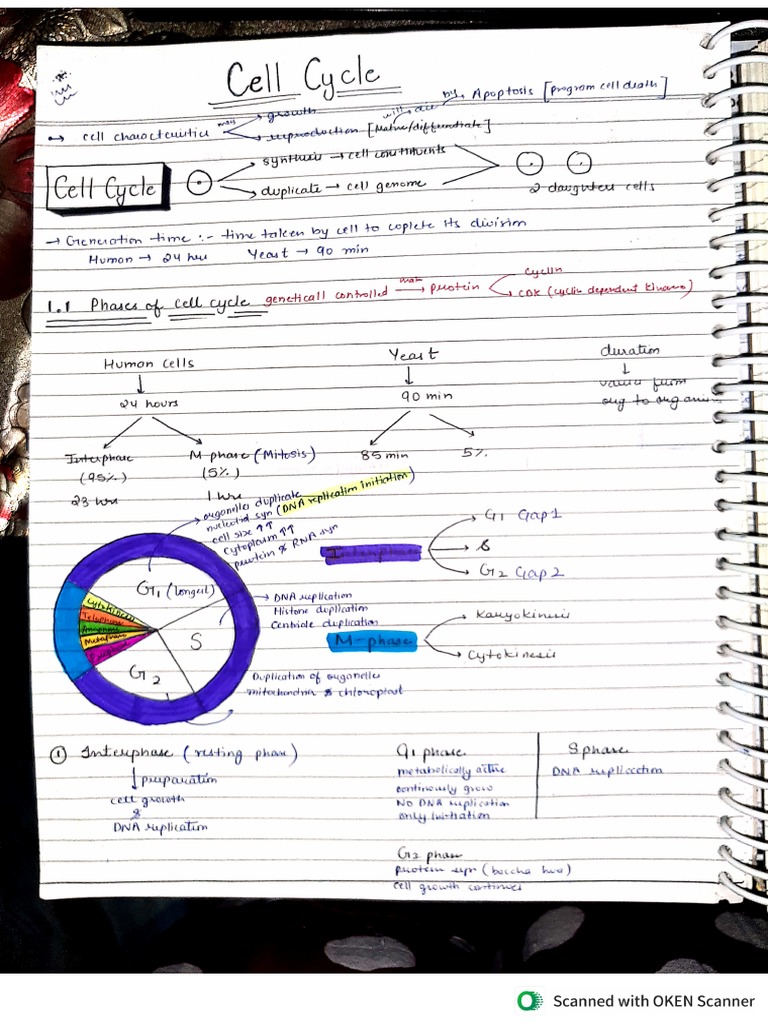 Cell Cycle
by, Apoptosis [program cell death]
→ cell characteristics may growth
reproduction [Mature/differentiate] will die
Cell Cycle
synthesis → cell constituents
duplicate → cell genome
2 daughter cells
→ Generation time :- time taken by cell to coplete its division
Human → 24 hrs Yeast → 90 min
1.1 Phases of cell cycle geneticall controlled → protein
cyclin
CDK (cyclin dependent kinases)
Human cells
24 hours
Interphase
(95%)
23 hrs
M-phase (Mitosis)
(5%)
1 hrs
Yeast
90 min
85 min
5%
duration
↓
varies from
org to organism
organelle duplicate
nucleotid syn (DNA replication initiation)
cell size ↑↑
Cytoplasm ↑↑
protein & RNA syn
G1 (longest)
S
G2
Cytokinesis
Telophase
Anaphase
Metaphase
Prophase
→ DNA replication
Histone duplication
Centriole duplication
Duplication of organelle
mitochondria & chloroplast
Interphase
G1 Gap1
S
G2 Gap2
M-phase
Karyokinesis
Cytokinesis
① Interphase (resting phase)
↓ preparation
cell growth
&
DNA replication
G1 phase
metabolically active
continously grow
NO DNA replication
only initiation
S phase
DNA replication
G2 phase
protein syn (baccha hua)
cell growth continues
Scanned with OKEN Scanner